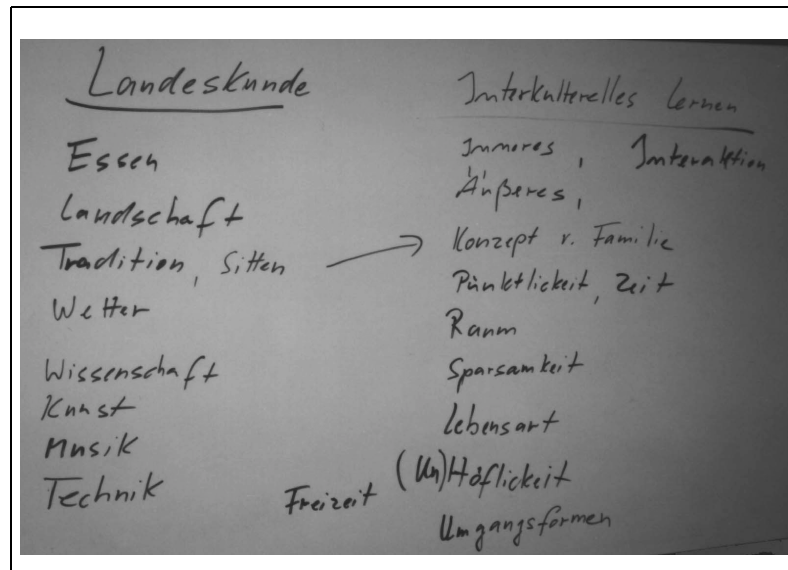 Landeskunde
Essen
Landschaft
Tradition, Sitten
Wetter
Wissenschaft
Kunst
Musik
Technik
Freizeit
Interkulterelles Lernen
Inneres, Interaktion
Äußeres,
Konzept v. Familie
Pünktlickeit, Zeit
Raum
Sparsamkeit
Lebensart
(Un)Höflickeit
Umgangsformen